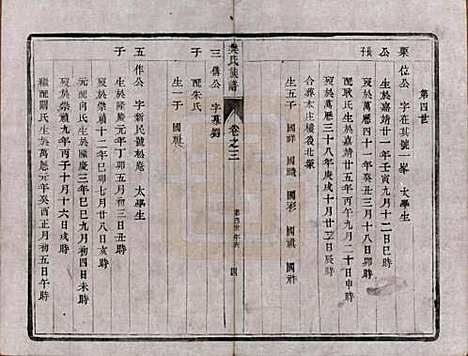 第四世
棗位公 字在其號一峯 太學生
生於嘉靖廿一年壬寅九月十二日巳時
歿於萬歷四十一年癸丑三月十八日卯時
配耿氏生於嘉靖廿五年丙午九月二十日申時
歿於萬歷三十八年庚戌十月廿三日辰時
合葬本庄樓後北塋
生五子 國祥 國 國彩 國禎 國祚
公
長
樊氏族譜
卷之三
第四世
四
三儒公 字
子
配朱氏
生一子 國
五作公 字新民號松庵 太學生
子
生於隆慶元年丁卯五月初三日丑時
歿於崇禎十二年己卯三月十八日亥時
配尚氏生於隆慶三年己巳九月初四日未時
歿於崇禎九年丙子十月十六日亥時
繼配閻氏生於萬歷元年癸酉正月初五日午時